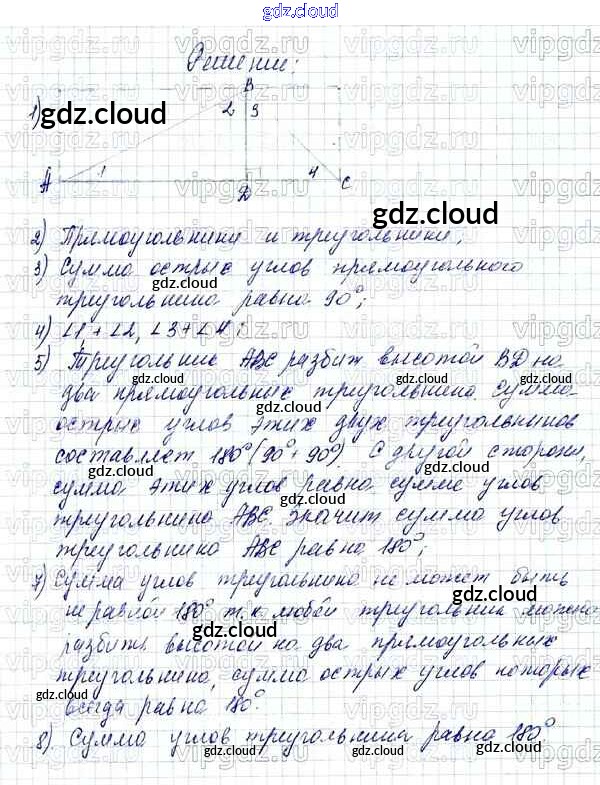 gdz.cloud
Решение:
1)
B
2 3
A 1 D 4 C
2) Прямоугольники и треугольники;
3) Сумма острых углов прямоугольного
треугольника равна 90°;
4) ∠1+∠2, ∠3+∠4;
5) Треугольник ABC разбит высотой BD на
два прямоугольных треугольника. Сумма
острых углов этих двух треугольников
составляет 180° (90°+90°) С другой стороны,
сумма этих углов равна сумме углов
треугольника ABC. Значит сумма углов
треугольника ABC равна 180°;
7) Сумма углов треугольника не может быть
не равной 180° т.к любой треугольник можно
разбить высотой на два прямоугольных
треугольника, сумма острых углов которых
всегда равна 180°.
8). Сумма углов треугольника равна 180°